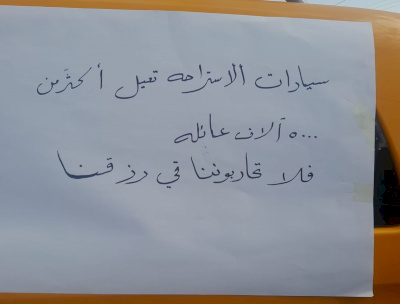 سيارات الاستراحه تعيل أكثر من
٥٠٠٠ آلاف عائله
فلا تحاربوننا في رزقنا